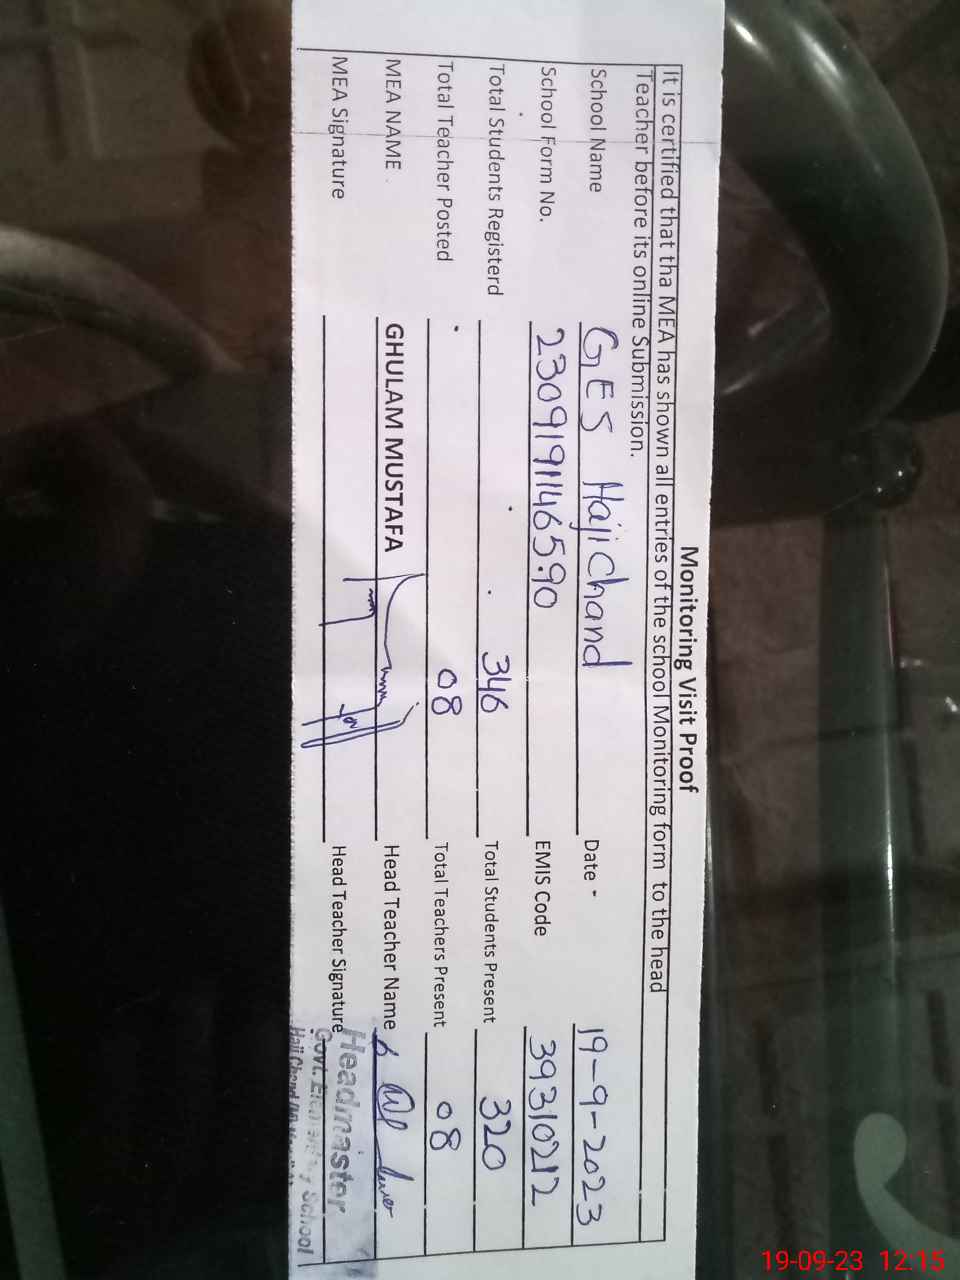 Monitoring Visit Proof
It is certified that tha MEA has shown all entries of the school Monitoring form to the head
Teacher before its online Submission.
School Name GES Hajichand Date 19-9-2023
School Form No. 2309191146590 EMIS Code 39310212
Total Students Registerd 346 Total Students Present 320
Total Teacher Posted 08 Total Teachers Present 08
MEA NAME GHULAM MUSTAFA Head Teacher Name
MEA Signature Head Teacher Signature
Headmaster
Govt. Elementary School
Haji Chand
19-09-23 12:15